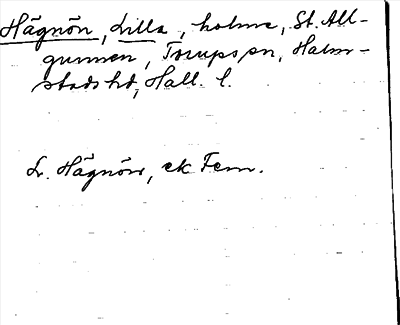 Hägnön, Lilla, holme, St. All-
gunnen, Torups sn, Halm-
stads hd, Hall. l.
L. Hägnön, ek Fem.